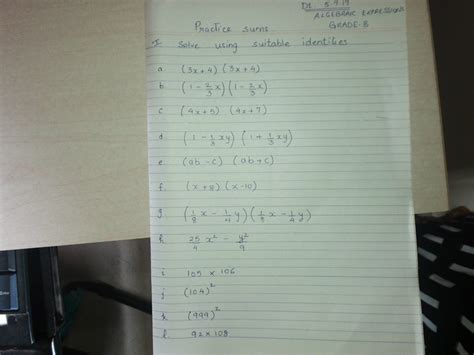 Dt 5.9.19
ALGEBRAIC EXPRESSIONS
GRADE-8
Practice sums
I Solve using suitable identities
a (3x+4) (3x+4)
b (1 - 2/3 x) (1 - 2/3 x)
c (4x+5) (4x+7)
d (1 - 1/3 xy) (1 + 1/3 xy)
e (ab-c) (ab+c)
f. (x+8) (x-10)
g (1/8 x - 1/4 y) (1/3 x - 1/4 y)
h 25/4 x² - y²/9
i 105 x 106
j (104)²
k (999)²
l 92 x 108